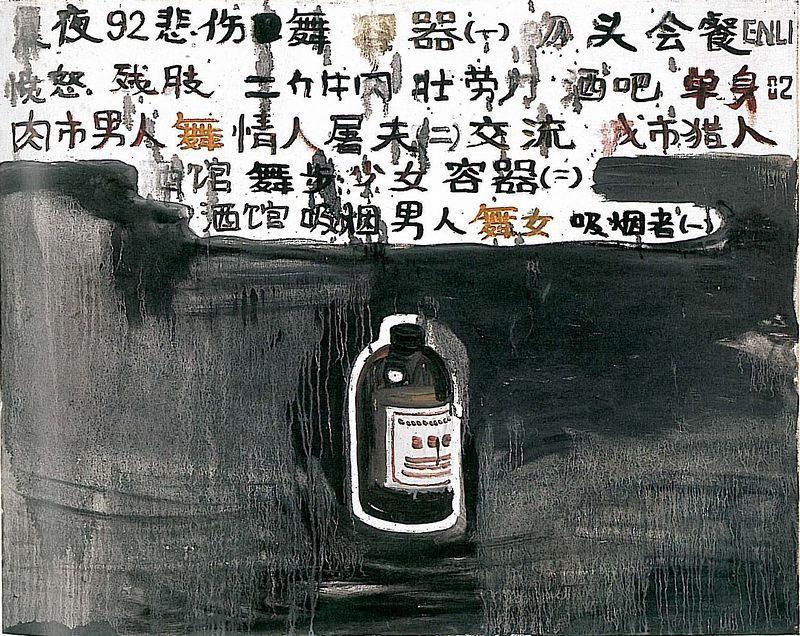 夜92悲伤 舞 器(一) 头 会餐 ENLI
愤怒 残肢 二 牛肉 壮劳力 酒吧 单身
肉市男人舞 情人 屠夫(二) 交流 城市猎人
馆 舞步 少女 容器(二)
酒馆 吸烟男人 舞女 吸烟者(一)